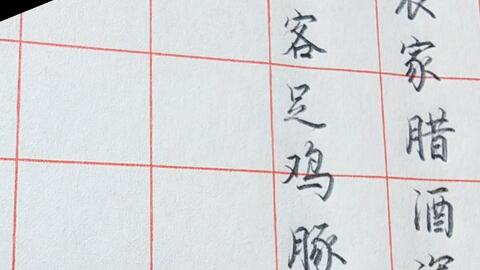 家腊酒
客足鸡豚